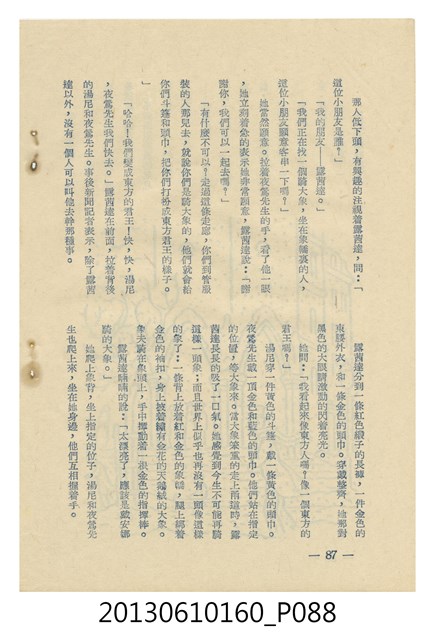 那人低下頭，有興趣的注視着露茜達，問：「
這位小朋友是誰？」
「我的朋友——露茜達。」
「我們正在找一個騎大象，坐在象轎裏的人，
這位小朋友願意客串一下嗎？」
她當然願意。拉着夜鶯先生的手，看了他一眼
，她立刻着急的表示她非常願意，露茜達說：「謝
謝你，我們可以一起去嗎？」
「有什麼不可以？走過這條走廊，你們到管服
裝的人那兒去，就說你們是騎大象的，他們就會給
你們斗篷和頭巾，把你們打扮成東方君王的樣子。
」
「哈哈！我們變成東方的君王！快，快，湯尼
，夜鶯先生我們快去。」露茜達在前面，拉着背後
的湯尼和夜鶯先生。事後新聞記者表示，除了露茜
達以外，沒有一個人可以叫他去幹那種事。
露茜達分到一條紅色緞子的長褲，一件金色的
東腰外衣，和一條金色的頭巾。穿戴整齊，她那對
黑色的大眼睛激動的閃着亮光。
她問：「我看起來像東方人嗎？像一個東方的
君王嗎？」
湯尼穿一件黃色的斗篷，戴一條黃色的頭巾。
夜鶯先生戴一頂金色和藍色的頭巾。他們站在指定
的位置，等大象來。當大象笨重的走上前這時，露
茜達長長的吸了一口氣。她感覺到今生不可能再騎
這樣一頭象：而且世界上似乎也再沒有一頭像這樣
的象了：一條背上放着紅和金色的象轎，腿上綁着
金色的褲扣，身上披着繡有金花的天鵝絨的大象。
象夫騎在象頭上，手中揮動着一根金色的指揮棒。
露茜達喃喃的說：「太漂亮了，應該是戴安娜
騎的大象。」
她爬上象背，坐上指定的位子，湯尼和夜鶯先
生也爬上來，坐在她身邊，他們互相握着手。
— 87 —
20130610160_P088